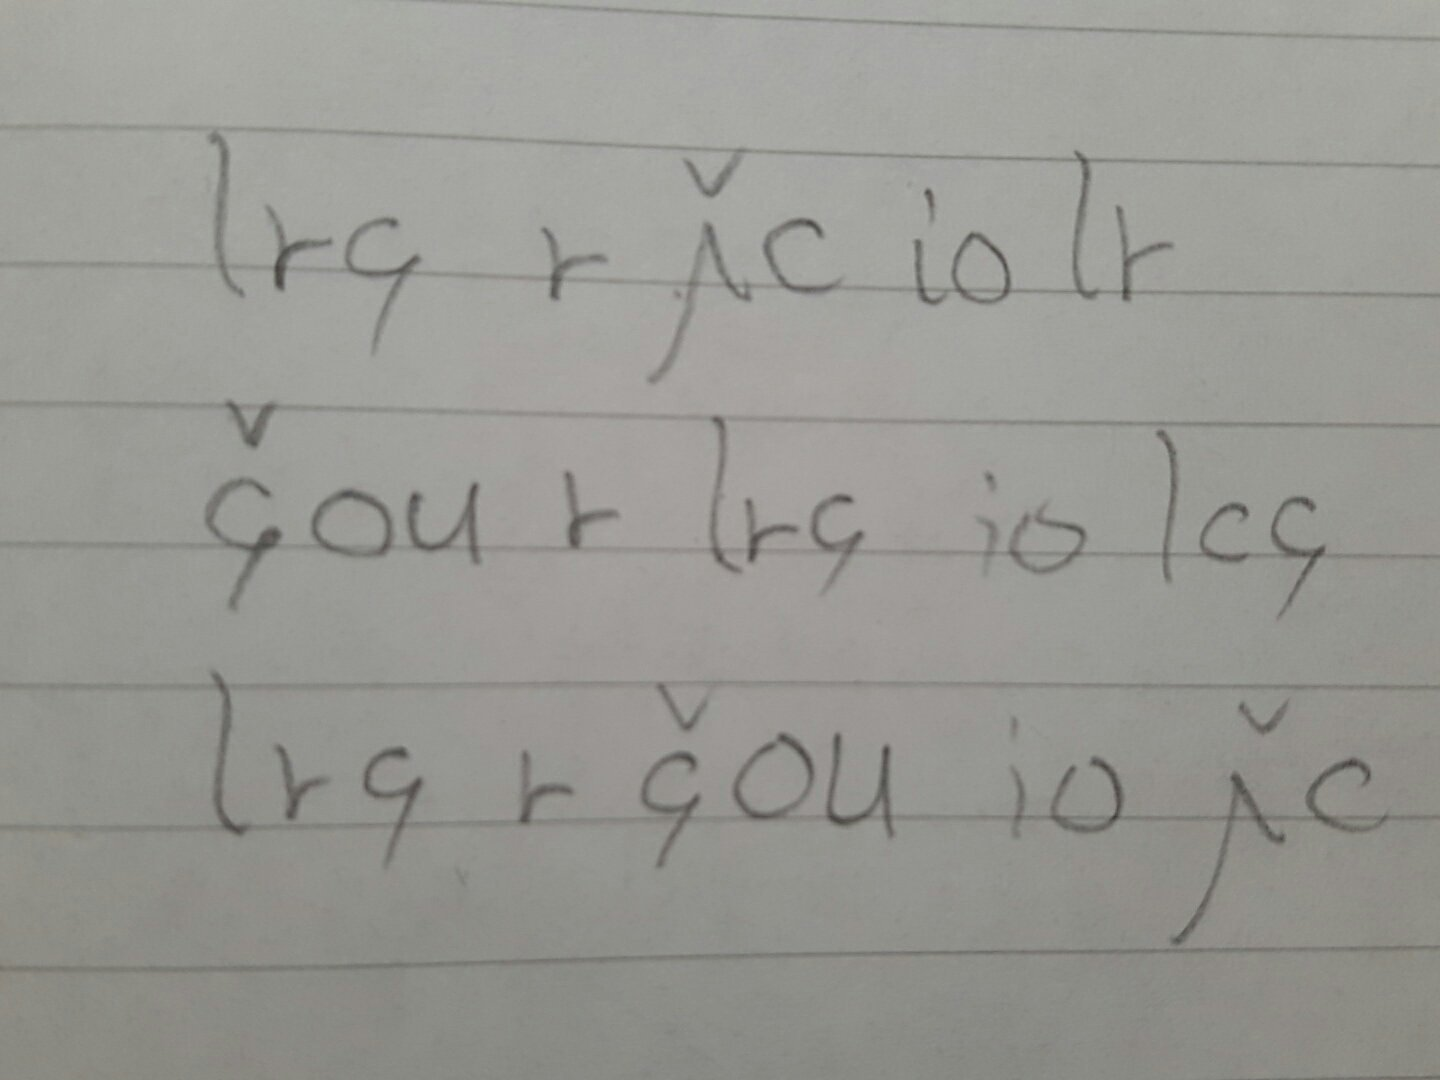 lrς r λ̌c io lr
ς̌ou r lrς io lcς
lrς r ς̌ou io λ̌c